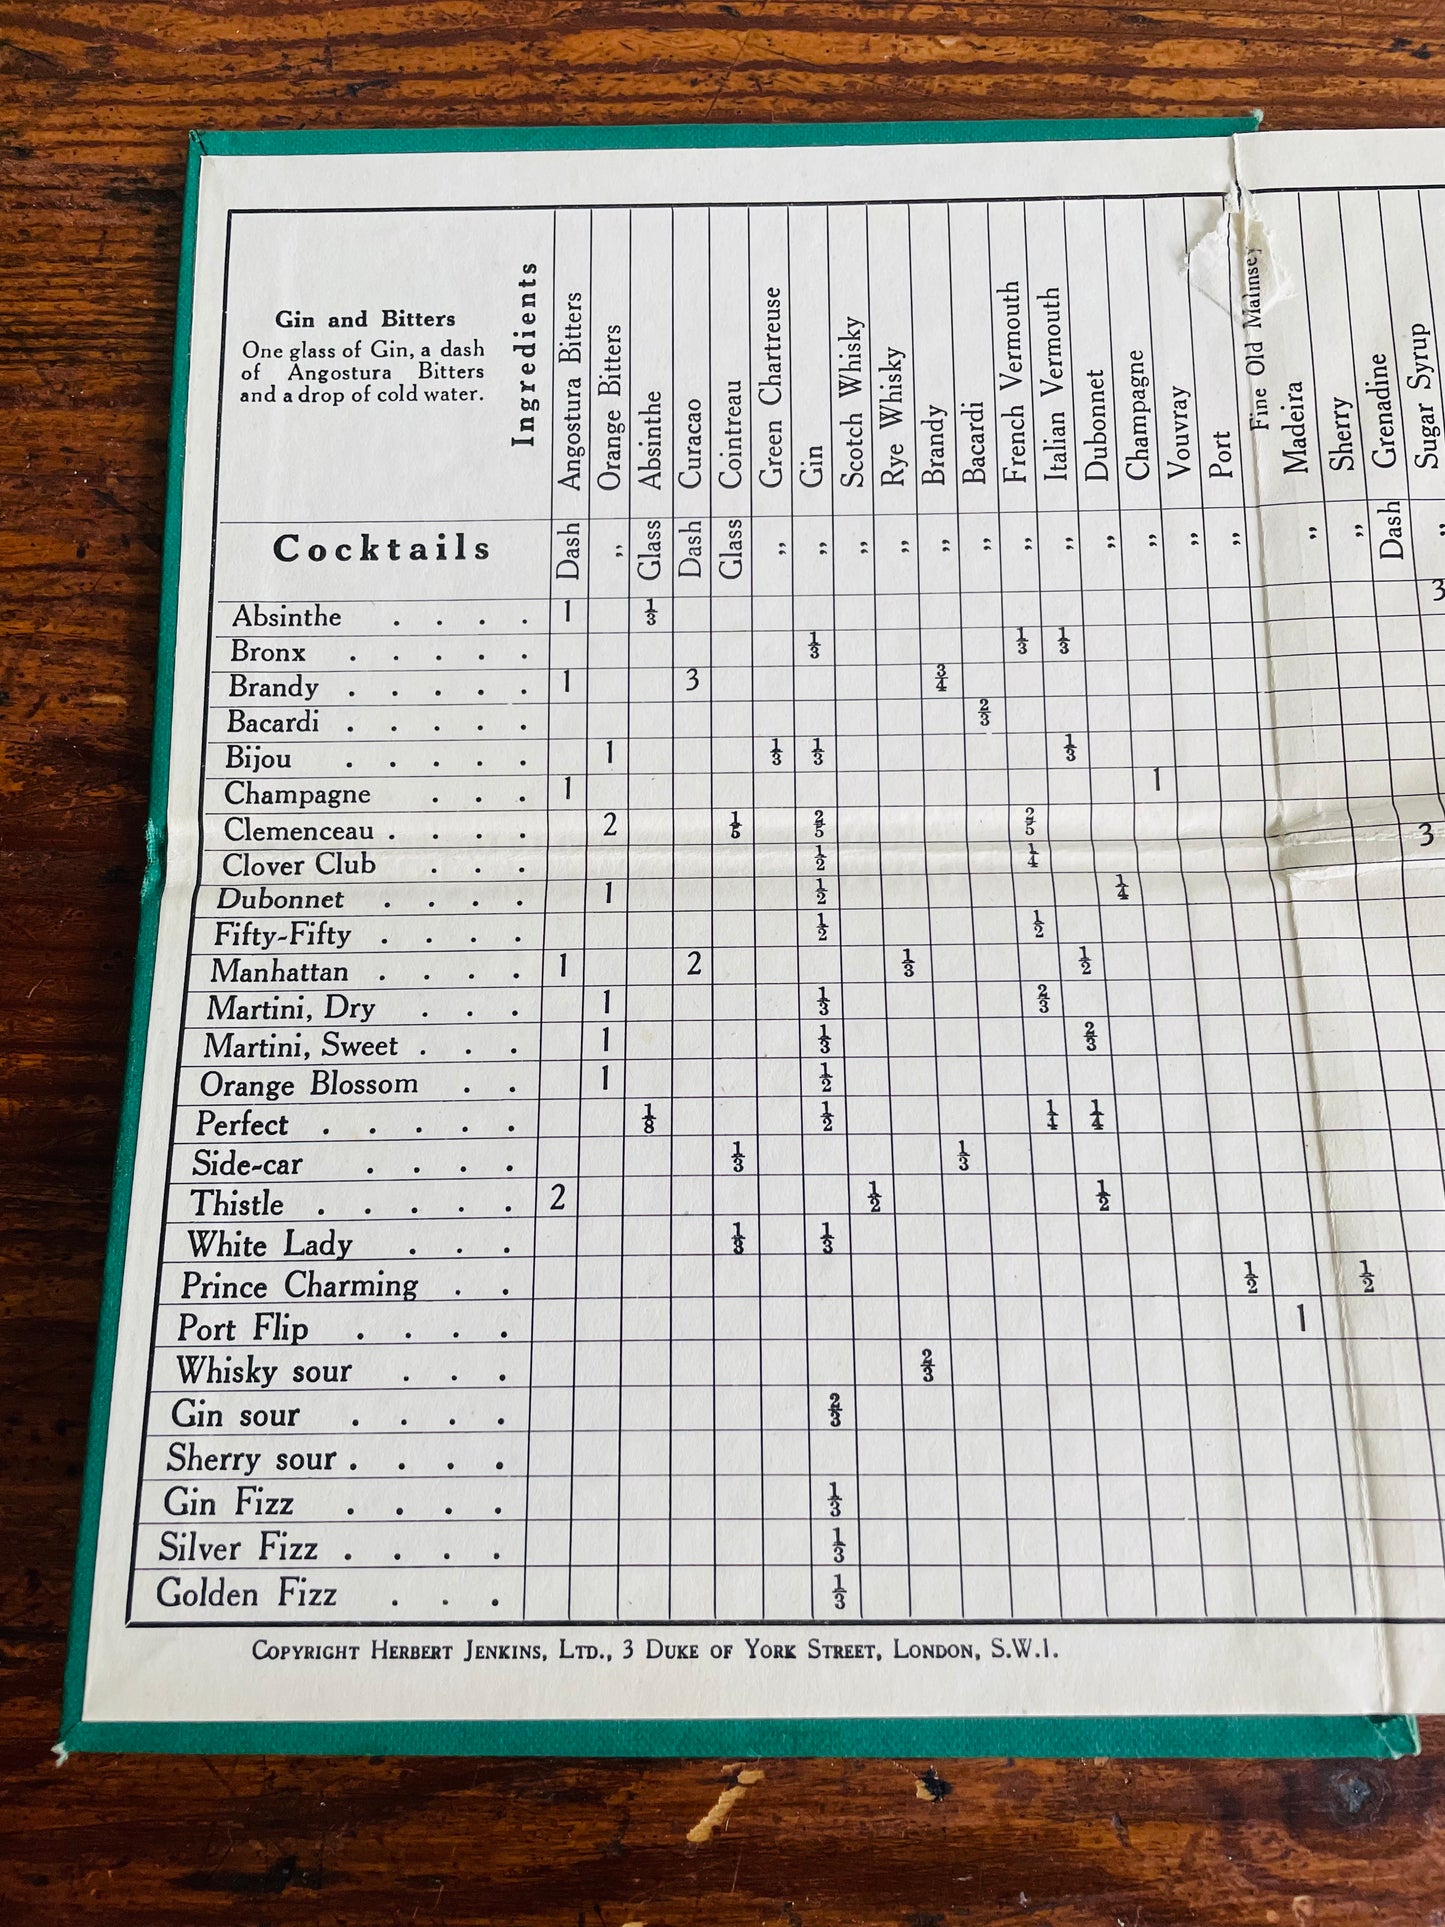 Gin and Bitters
One glass of Gin, a dash
of Angostura Bitters
and a drop of cold water.
Ingredients
Angostura Bitters
Orange Bitters
Absinthe
Curacao
Cointreau
Green Chartreuse
Gin
Scotch Whisky
Rye Whisky
Brandy
Bacardi
French Vermouth
Italian Vermouth
Dubonnet
Champagne
Vouvray
Port
Fine Old Malmsey
Madeira
Sherry
Grenadine
Sugar Syrup
Cocktails Dash ,, Glass Dash Glass ,, ,, ,, ,, ,, ,, ,, ,, ,, ,, ,, ,, ,, Dash ,,
Absinthe . . . . 1 1/3 3
Bronx . . . . . 1/3 1/3 1/3
Brandy . . . . . 1 3 3/4
Bacardi . . . . . 2/3
Bijou . . . . . 1 1/3 1/3 1/3
Champagne . . . 1 1
Clemenceau . . . . 2 1/5 2/5 2/5 3
Clover Club . . . 1/2 1/4
Dubonnet . . . . 1 1/2 1/4
Fifty-Fifty . . . . 1/2 1/2
Manhattan . . . . 1 2 1/3 1/2
Martini, Dry . . . 1 1/3 2/3
Martini, Sweet . . . 1 1/3 2/3
Orange Blossom . . 1 1/2
Perfect . . . . . 1/8 1/2 1/4 1/4
Side-car . . . . 1/3 1/3
Thistle . . . . . 2 1/2 1/2
White Lady . . . 1/3 1/3
Prince Charming . . 1/2 1/2
Port Flip . . . . 1
Whisky sour . . . 2/3
Gin sour . . . . 2/3
Sherry sour . . . .
Gin Fizz . . . . 1/3
Silver Fizz . . . . 1/3
Golden Fizz . . . 1/3
Copyright Herbert Jenkins, Ltd., 3 Duke of York Street, London, S.W.1.